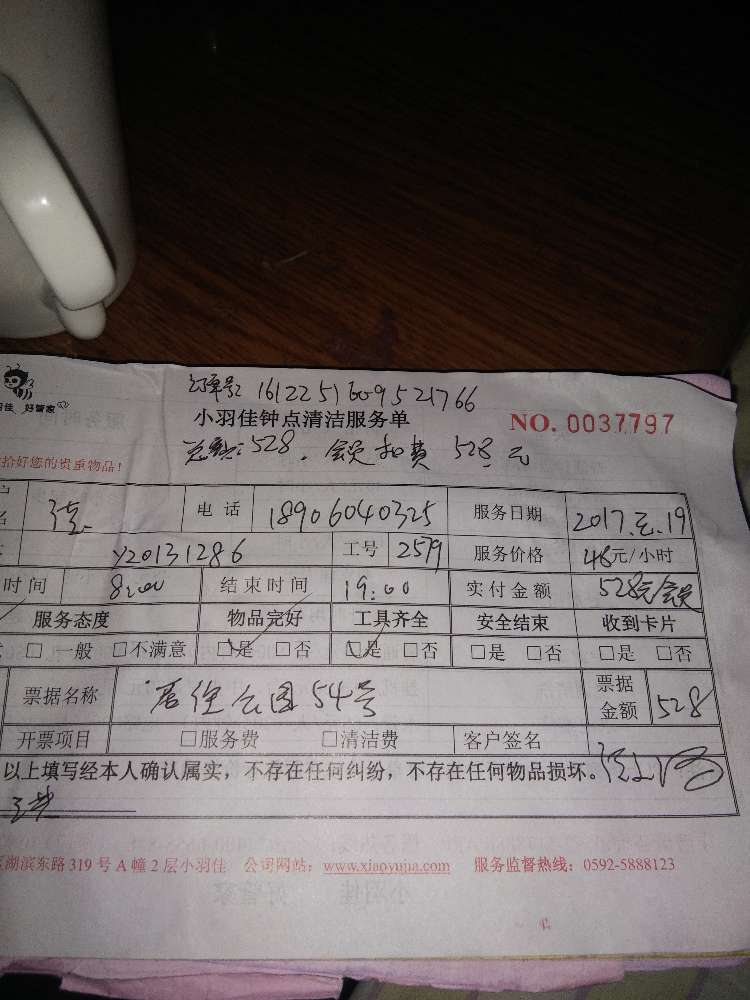 订单号: 1612251609521766
羽佳 好管家
小羽佳钟点清洁服务单
NO. 0037797
总额:528. 会员扣费 528.元
拾好您的贵重物品!
电话 18906040325 服务日期 2017.元.19
y20131286 工号 2579 服务价格 48元/小时
时间 8:00 结束时间 19:00 实付金额 528元会员
服务态度 物品完好 工具齐全 安全结束 收到卡片
□一般 □不满意 □是 □否 □是 □否 □是 □否 □是 □否
票据名称 居住公园54号 票据金额 528
开票项目 □服务费 □清洁费 客户签名
以上填写经本人确认属实,不存在任何纠纷,不存在任何物品损坏。
湖滨东路319号A幢2层小羽佳 公司网站:www.xiaoyujia.com 服务监督热线:0592-5888123